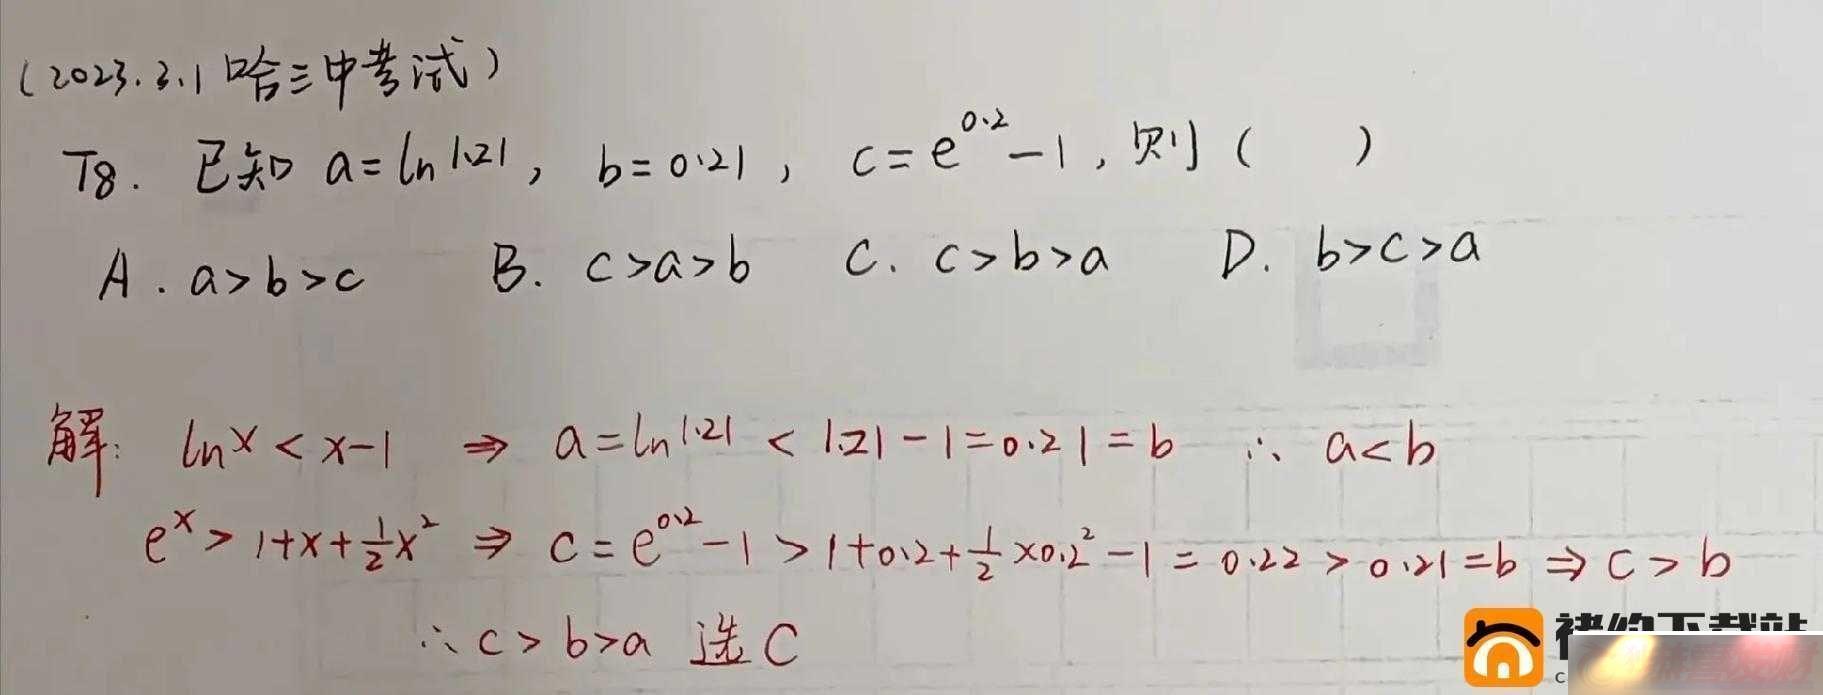 (2023.3.1 哈三中考试)
T8. 已知 a=ln1.21, b=0.21, c=e^0.2-1, 则( )
A. a>b>c B. c>a>b C. c>b>a D. b>c>a
解: lnx<x-1 ⇒ a=ln1.21<1.21-1=0.21=b ∴ a<b
e^x>1+x+1/2x² ⇒ c=e^0.2-1>1+0.2+1/2×0.2²-1=0.22>0.21=b ⇒ c>b
∴ c>b>a 选C